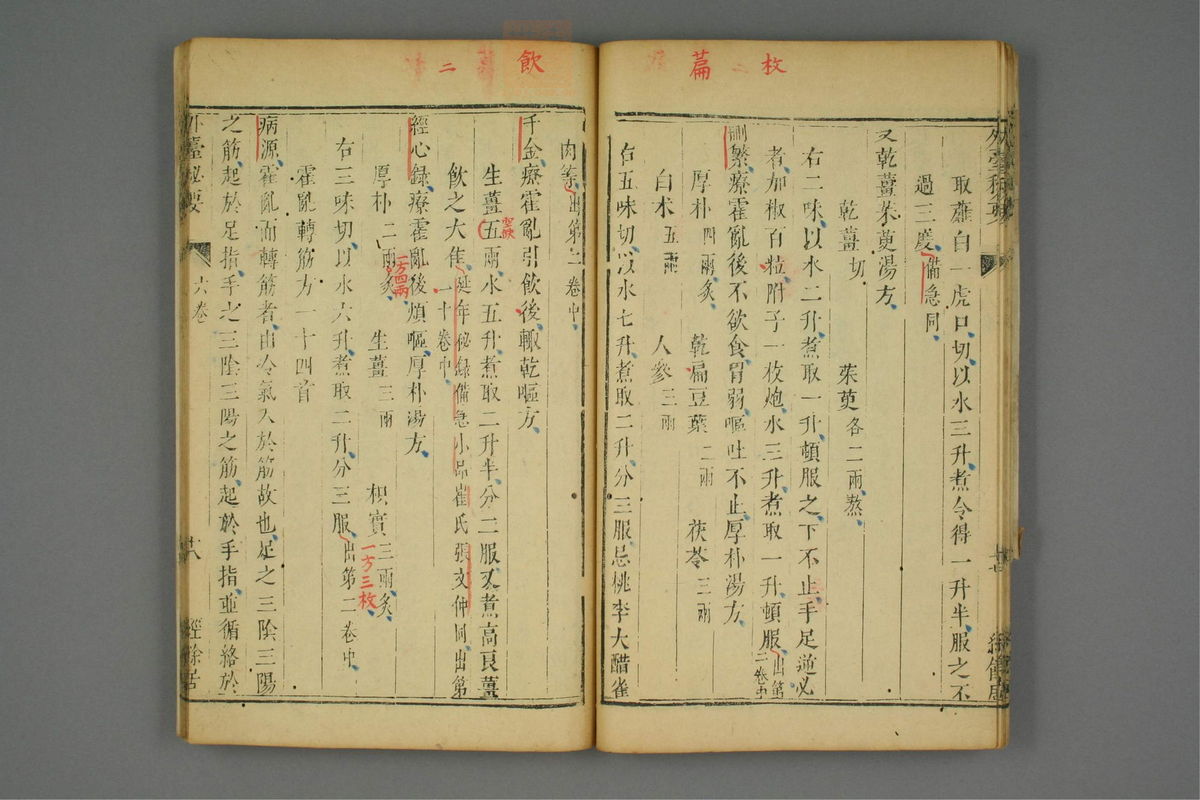 枚
篇
取薤白一虎口切以水三升煮令得一升半服之不
過三度備急同
又乾薑茱萸湯方
乾薑切 茱萸各二兩熬
右二味以水二升煮取一升頓服之下不止手足逆必
者加椒百粒附子一枚炮水三升煮取一升頓服出第
二卷中
刪繁療霍亂後不欲食胃弱嘔吐不止厚朴湯方
厚朴四兩炙 乾扁豆葉二兩 茯苓三兩
白术五兩 人參三兩
右五味切以水七升煮取二升分三服忌桃李大醋雀
飲
二
肉等出第二卷中
千金療霍亂引飲後輒乾嘔方
生薑五兩水五升煮取二升半分二服又煮高良薑
飲之大佳延年秘録備急小品崔氏張文仲同出第
一十卷中
經心録療霍亂後煩嘔厚朴湯方
厚朴二兩炙 生薑三兩 枳實三兩炙
一方四兩
一方三枚
右三味切以水六升煮取二升分三服出第二卷中
霍亂轉筋方一十四首
病源霍亂而轉筋者由冷氣入於筋故也足之三陰三陽
之筋起於足指手之三陰三陽之筋起於手指並循絡於
外臺祕要 六卷 經餘居